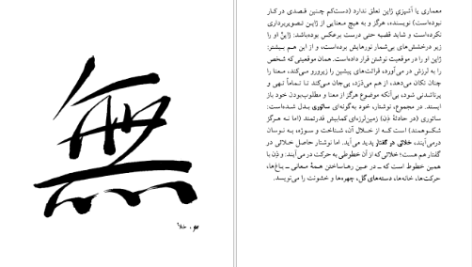 無
مو، خلأ
معماری یا آشپزی ژاپن تعلق ندارد (دست‌کم چنین قصدی در کار
نبوده‌است) نویسنده، هرگز و به هیچ معنایی از ژاپن تصویربرداری
نکرده‌است و شاید قضیه حتی درست برعکس بوده‌باشد: ژاپن او را
زیر درخشش‌های بی‌شمار نورهایش برده‌است، و از این هم بیشتر:
ژاپن او را در موقعیت نوشتن قرار داده‌است. همان موقعیتی که شخص
را به لرزش در می‌آورد، قرائت‌های پیشین را زیرورو می‌کند، معنا را
چنان تکان می‌دهد، از هم می‌درد، بی‌جان می‌کند تا تماماً تهی و
پرناشدنی شود، بی‌آنکه موضوع هرگز از معنا و مطلوب‌بودن خود باز
ایستد. در مجموع، نوشتار، خود به‌گونه‌ای ساتوری بدل شده‌است:
ساتوری (در حادثهٔ ذن) زمین‌لرزه‌ای کمابیش قدرتمند (اما نه هرگز
شکوهمند) است که از خلال آن، شناخت و سوژه، به نوسان
درمی‌آیند، خلائی در گفتار پدید می‌آید. اما نوشتار حاصل خلائی در
گفتار هم هست؛ خلائی که از آن خطوطی به حرکت در می‌آیند و ذن با
همین خطوط است که ـ در عین رهاساختن همهٔ معانی ـ باغ‌ها،
حرکت‌ها، خانه‌ها، دسته‌های گل، چهره‌ها و خشونت را می‌نویسد.